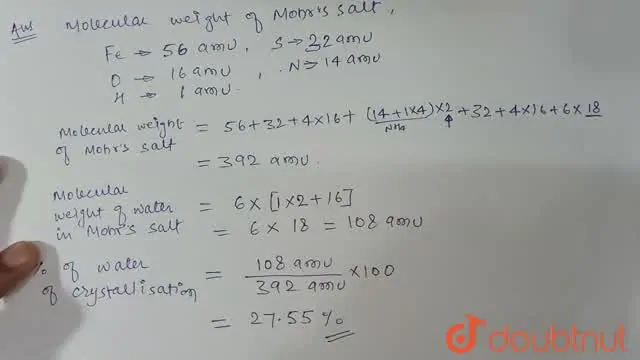 Ans Molecular weight of Mohr's salt,
Fe → 56 amu, S → 32 amu
O → 16 amu, N → 14 amu
H → 1 amu.
Molecular weight of Mohr's salt = 56+32+4×16+ (14+1×4)×2 +32+4×16+6×18
NH4
= 392 amu.
Molecular weight of water in Mohr's salt = 6×[1×2+16]
= 6 × 18 = 108 amu
% of water of crystallisation = 108 amu / 392 amu ×100
= 27.55 %
doubtnut